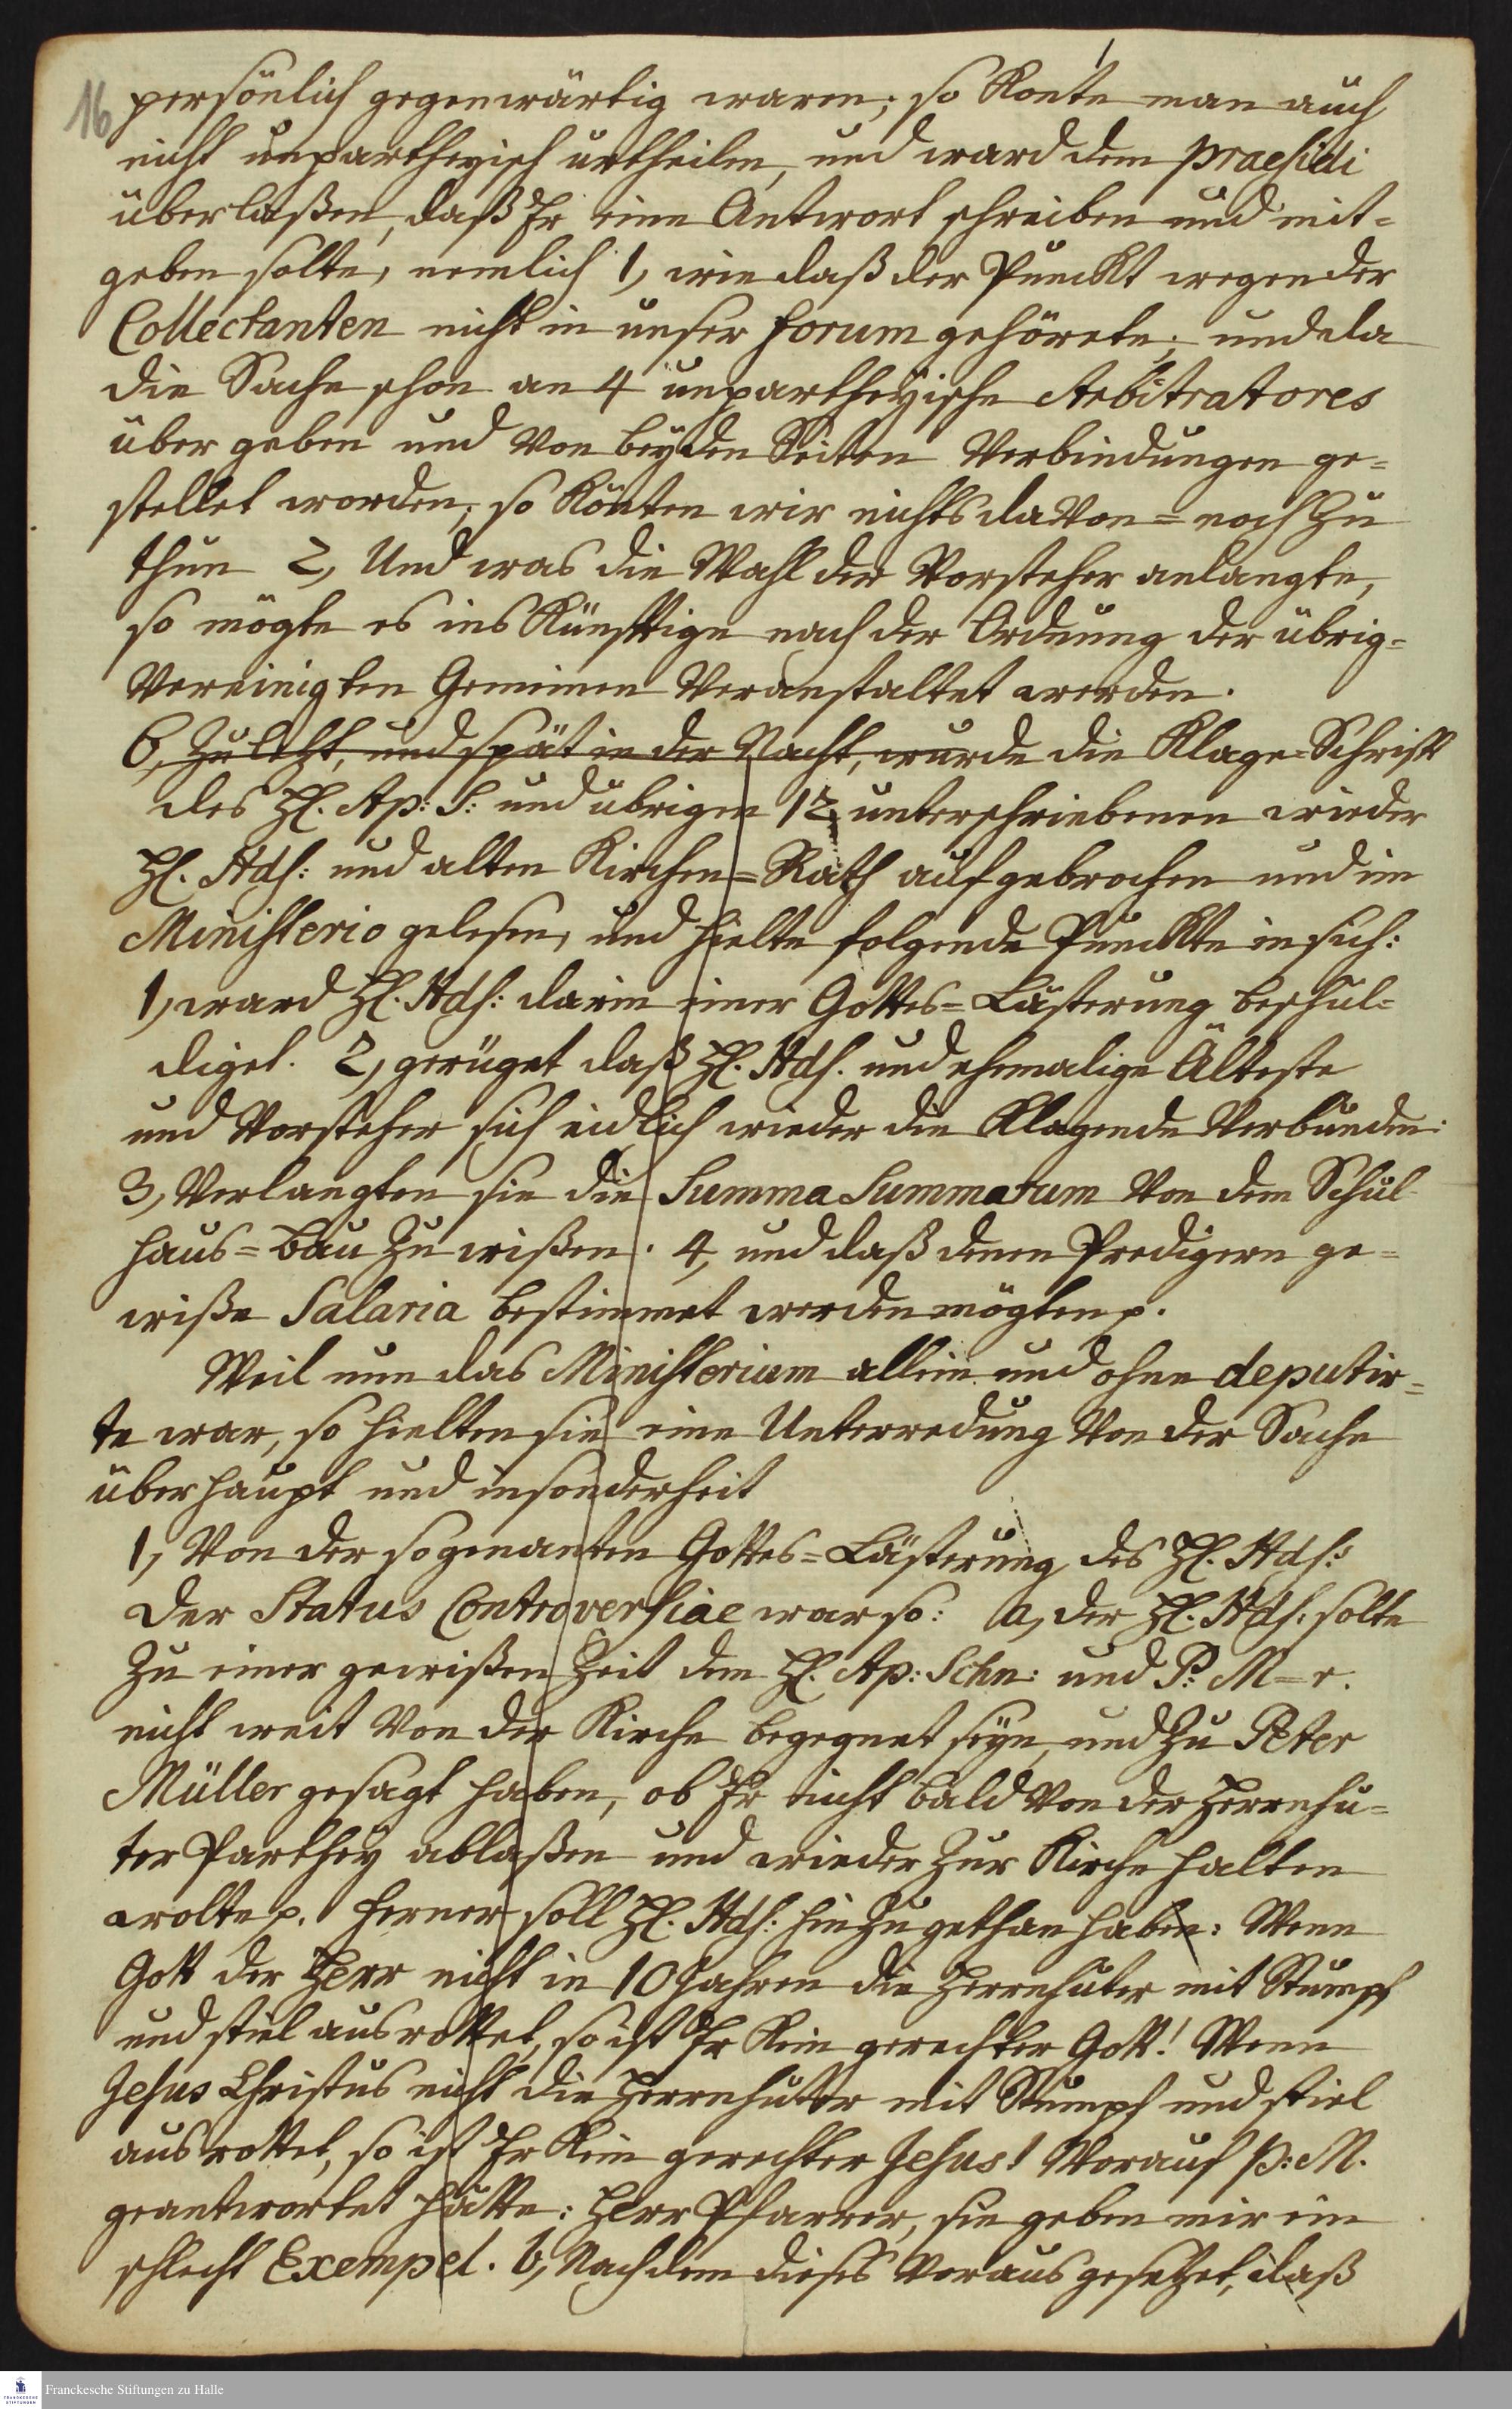 16
persönlich gegenwärtig waren; so konte man auch
nicht unpartheyisch urtheilen, und ward dem praesidi
überlaßen, daß Er eine Antwort schreiben und mit=
geben solte, nemlich 1, wie daß der Punckt wegen der
Collectanten nicht in unser forum gehörete; und da
die Sache schon an 4 unpartheyische Arbitratores
über geben und von beyden Seiten Verbindungen ge=
stellet worden; so könten wir nichts davon= noch zu
thun 2, Und was die Wahl der Vorsteher anlangte,
so mögte es ins künfftige nach der Ordnung der übrig=
Vereinigten Gemeinen veranstaltet werden.
6, Zuletzt, und spät in der Nacht, wurde die Klage=Schrifft
des H. Ap: S: und übrigen 12 unterschriebenen wieder
H. Hds: und alten Kirchen=Rath aufgebrochen und im
Ministerio gelesen, und hielte folgende Punckte in sich:
1, ward H. Hds: darin einer Gottes=Lästerung beschul=
diget. 2, gerüget daß H. Hds. und ehemalige Älteste
und Vorsteher sich eidlich wieder die Klagende verbunden:
3, Verlangten sie die Summa Summarum von dem Schul
haus=bau zu wißen. 4, und daß denen Predigern ge=
wiße Salaria bestimmet werden mögten p.
Weil nun das Ministerium allein und ohne deputir=
te war, so hielten sie eine Unterredung von der Sache
überhaupt und insonderheit
1, Von der sogenanten Gottes=Lästerung des H. Hds:
Der Status Controversiae war so: a, der H. Hds: solte
zu einer gewißen Zeit dem H. Ap: Schn: und P: M=r.
nicht weit von der Kirche begegnet seyn, und zu Peter
Müller gesagt haben, ob Er nicht bald von der Herrnhu=
ter Parthey ablaßen und wieder zur Kirche halten
wolte p. Ferner soll H. Hds: hinzu gethan haben: Wenn
Gott der Herr nicht in 10 Jahren die Herrnhuter mit Stumpf
und stiel ausrottet, so ist Er kein gerechter Gott! Wenn
Jesus Christus nicht die Herrnhuter mit Stumpf und stiel
ausrottet, so ist Er kein gerechter Jesus! Worauf P: M.
geantwortet hätte: Herr Pfarrer, sie geben mir ein
schlecht Exempel. b, Nachdem dieses voraus gesetzet, daß
Franckesche Stiftungen zu Halle